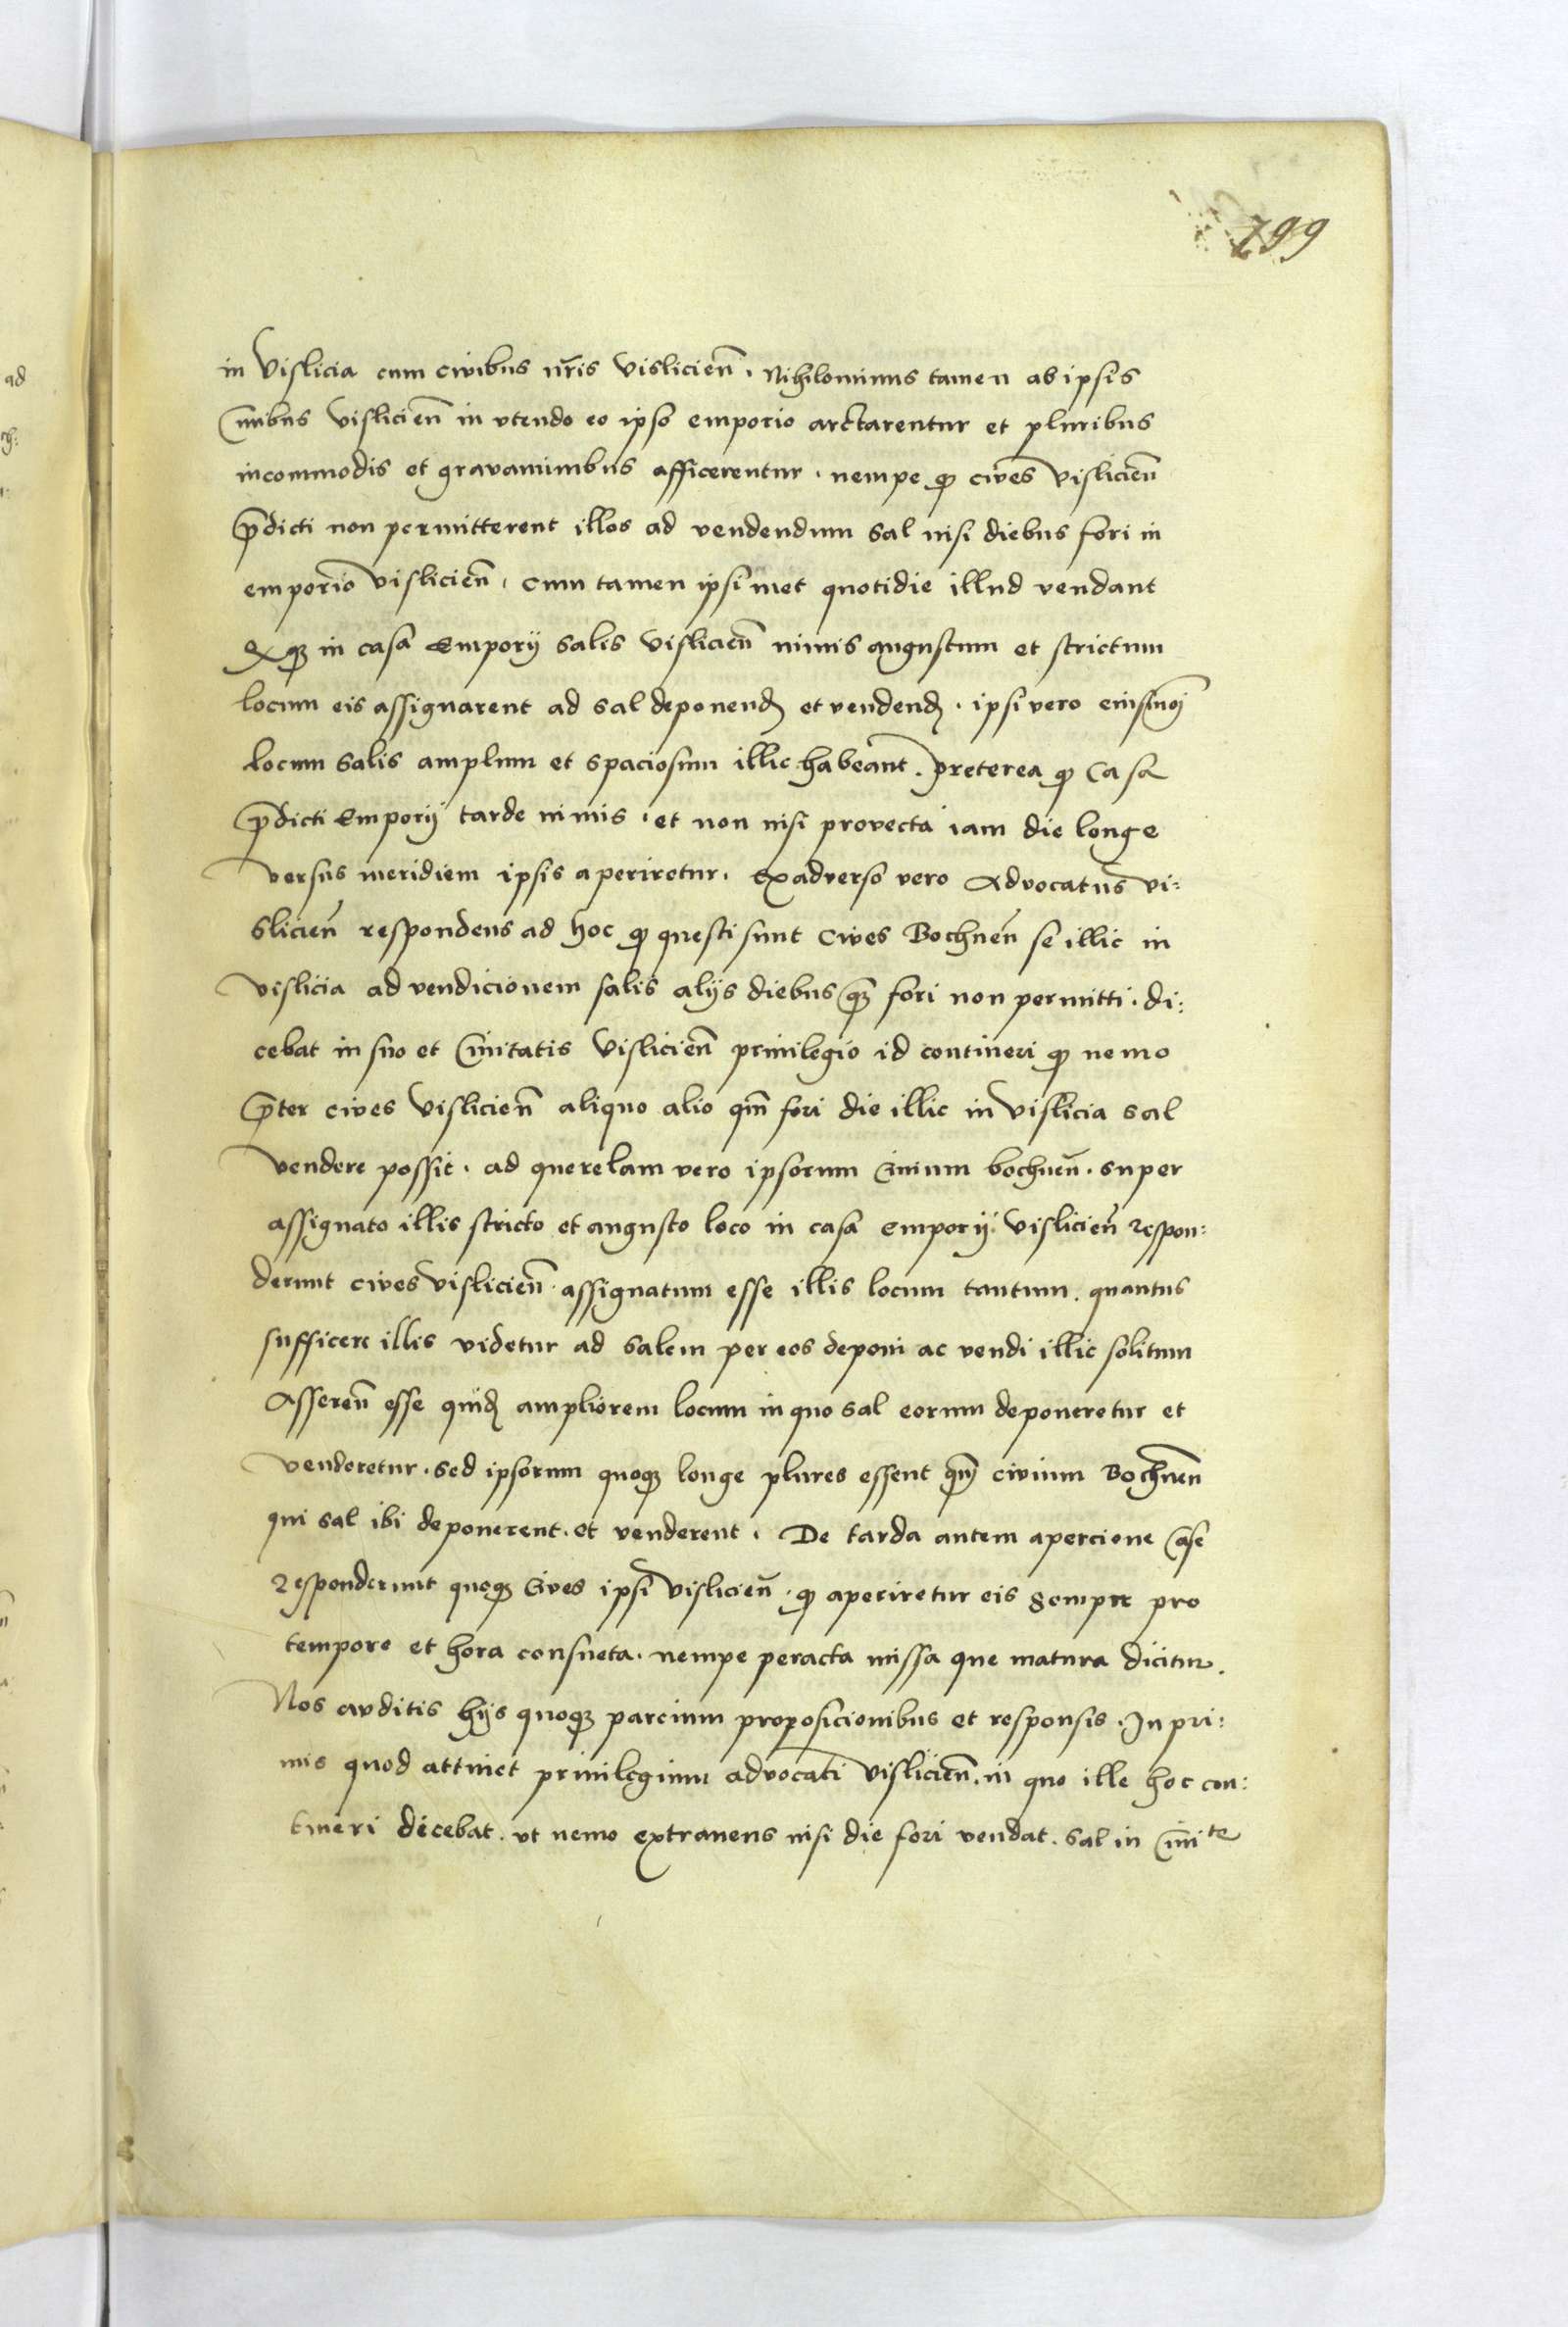 799
in Vislicia cum civibus nr̄is Visliciēn. Nihilominus tamen ab ipsis
Civibus Visliciēn in vtendo eo ipso emporio arctarentur et pluribus
incommodis et gravaminibus afficerentur. nempe ꝙ cives Visliciēn
p̄dicti non permitterent illos ad vendendum sal nisi diebus fori in
emporio Visliciēn, cum tamen ipsimet quotidie illud vendant
Et qꝫ in casa Emporij salis Visliciēn nimis angustum et strictum
locum eis assignarent ad sal deponenđ et vendenđ. ipsi vero eiusmōi
locum salis amplum et spaciosum illic habeant. preterea ꝙ Casa
p̄dicti Emporij tarde nimis. et non nisi provecta iam die longe
versus meridiem ipsis aperiretur. Ex adverso vero Advocatus Vi:
sliciēn respondens ad hoc ꝙ questi sunt Cives Bochnēn se illic in
Vislicia ad vendicionem salis alijs diebus qꝫ fori non permitti. di:
cebat in suo et Civitatis Visliciēn privilegio id contineri ꝙ nemo
p̄ter cives Visliciēn aliquo alio qm̄ fori die illic in Vislicia sal
vendere possit. ad querelam vero ipsorum Civium bochnēn. super
assignato illis stricto et angusto loco in casa emporij Visliciēn respon:
derunt cives Visliciēn. assignatum esse illis locum tantum. quantus
sufficere illis videtur ad salem per eos deponi ac vendi illic solitum
Asserēn esse quiđ ampliorem locum in quo sal eorum deponeretur et
venderetur. sed ipsorum quoqꝫ longe plures essent qm̄ civium Bochnēn
qui sal ibi deponerent. et venderent. De tarda autem apercione Case
responderunt quoqꝫ Cives ipsi Visliciēn. ꝙ aperiretur eis semper pro
tempore et hora consueta. nempe peracta missa que matura dicitur.
Nos auditis hijs quoqꝫ parcium proposicionibus et responsis. In pri:
mis quod attinet privilegium advocati Visliciēn. in quo ille hoc con:
tineri dicebat. vt nemo extraneus nisi die fori vendat. sal in Civite